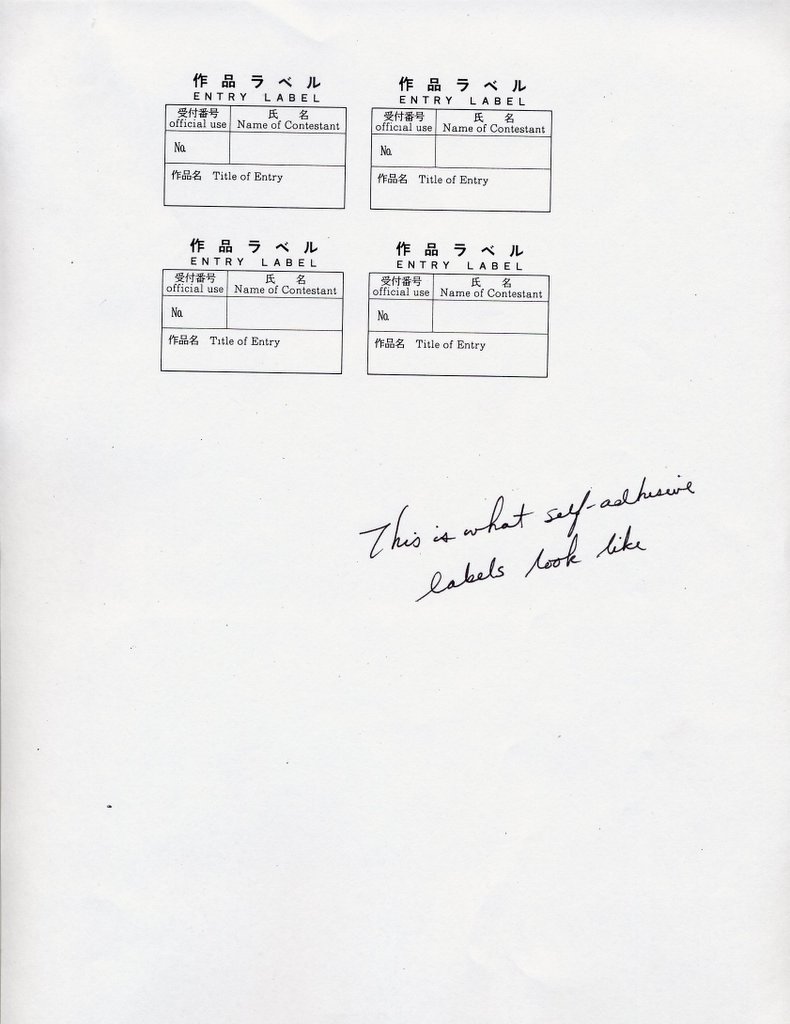 作品ラベル
ENTRY LABEL
受付番号 氏名
official use Name of Contestant
No.
作品名 Title of Entry
作品ラベル
ENTRY LABEL
受付番号 氏名
official use Name of Contestant
No.
作品名 Title of Entry
作品ラベル
ENTRY LABEL
受付番号 氏名
official use Name of Contestant
No.
作品名 Title of Entry
作品ラベル
ENTRY LABEL
受付番号 氏名
official use Name of Contestant
No.
作品名 Title of Entry
This is what self-adhesive
labels look like